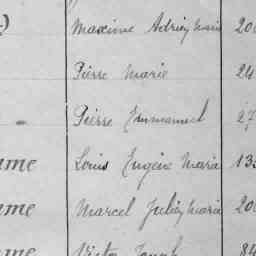 Maxime Adrien Marie 20
Pierre Marie 24
Pierre Emmanuel 27
ame Louis Eugène Marie 133
ame Marcel Julien Marie 20
ame Victor Joseph 84